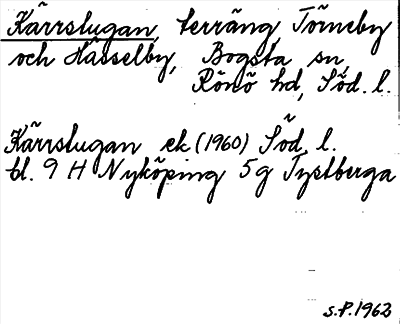 Kärrslugan, terräng, Törneby
och Hässelby, Bogsta sn,
Rönö hd, Söd. l.
Kärrslugan ek (1960) Söd. l.
bl. 9 H Nyköping 5g Tystberga
S.P. 1962